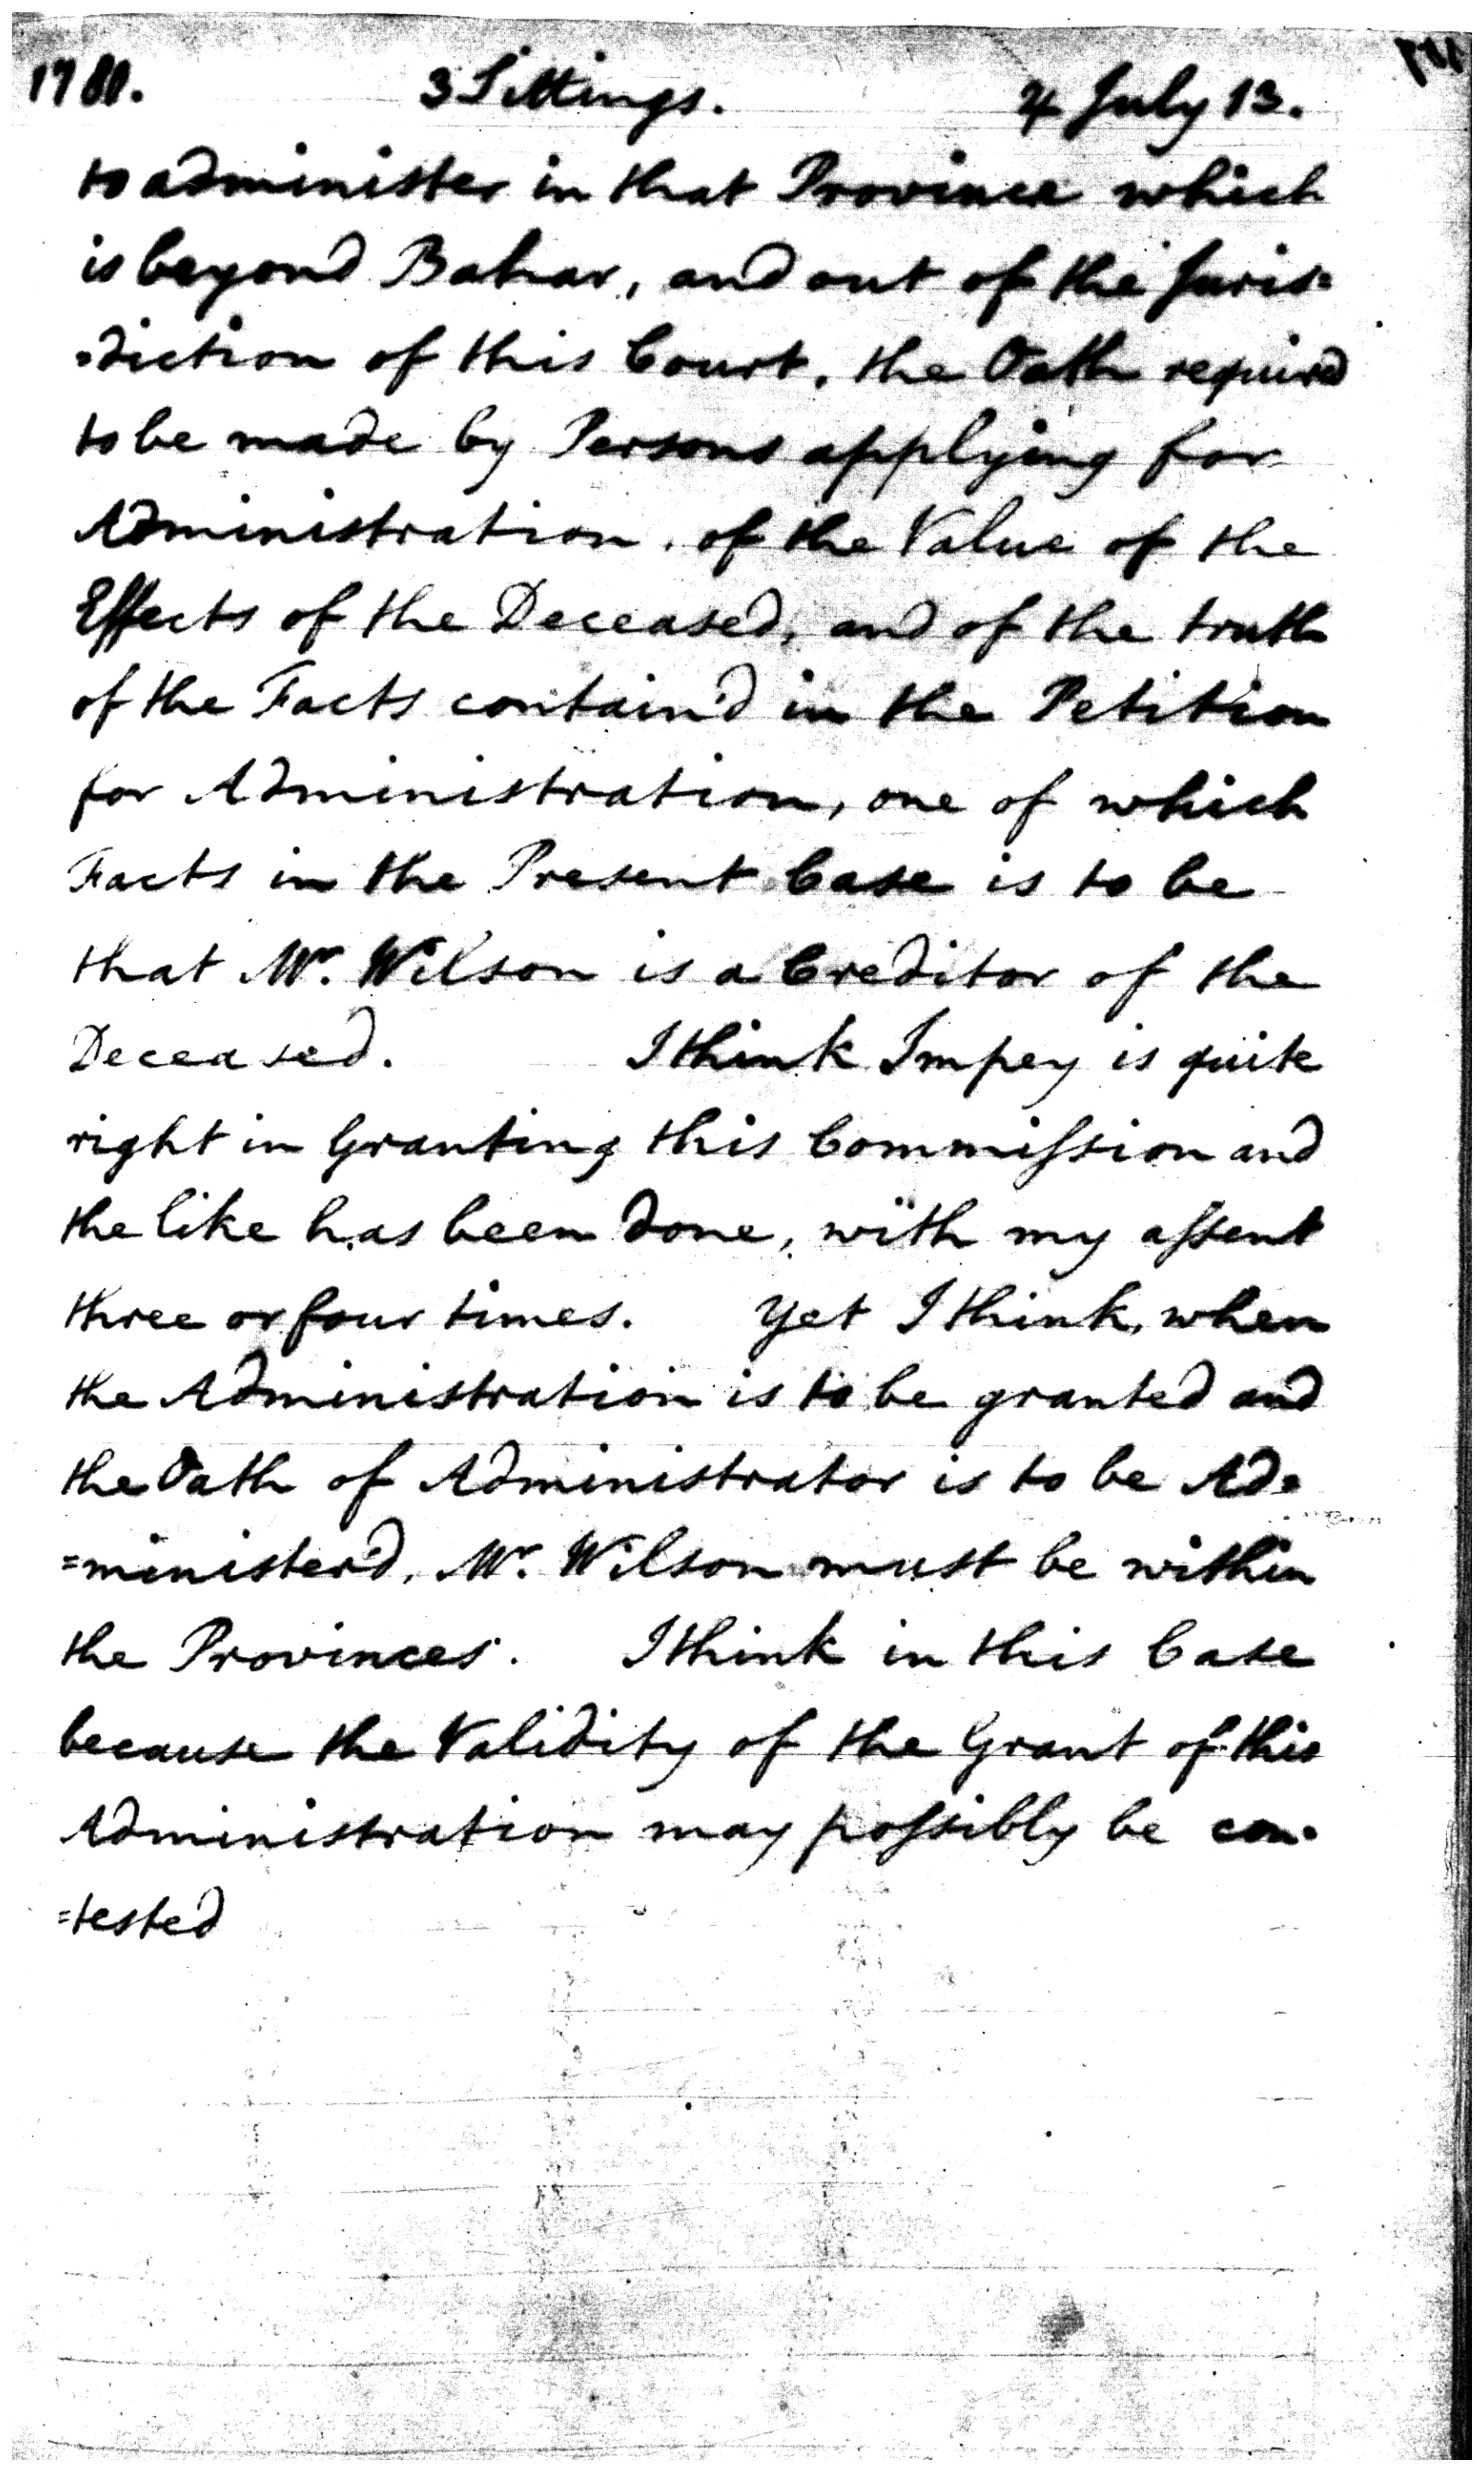 1780. 3 Sittings. ♃ July 13.
to administer in that Province which
is beyond Bahar, and out of the Juris=
=diction of this Court, the Oath requird
to be made by Persons applying for
Administration, of the Value of the
Effects of the Deceased, and of the truth
of the Facts contain'd in the Petition
for Administration, one of which
Facts in the Present Case is to be
that Mr. Wilson is a Creditor of the
Deceased. I think Impey is quite
right in Granting this Commiſsion and
the like has been done, with my aſsent
three or four times. Yet I think, when
the Administration is to be granted and
the Oath of Administrator is to be Ad=
=minister'd, Mr. Wilson must be within
the Provinces. I think in this Case
because the Validity of the Grant of this
Administration may poſsibly be con=
=tested